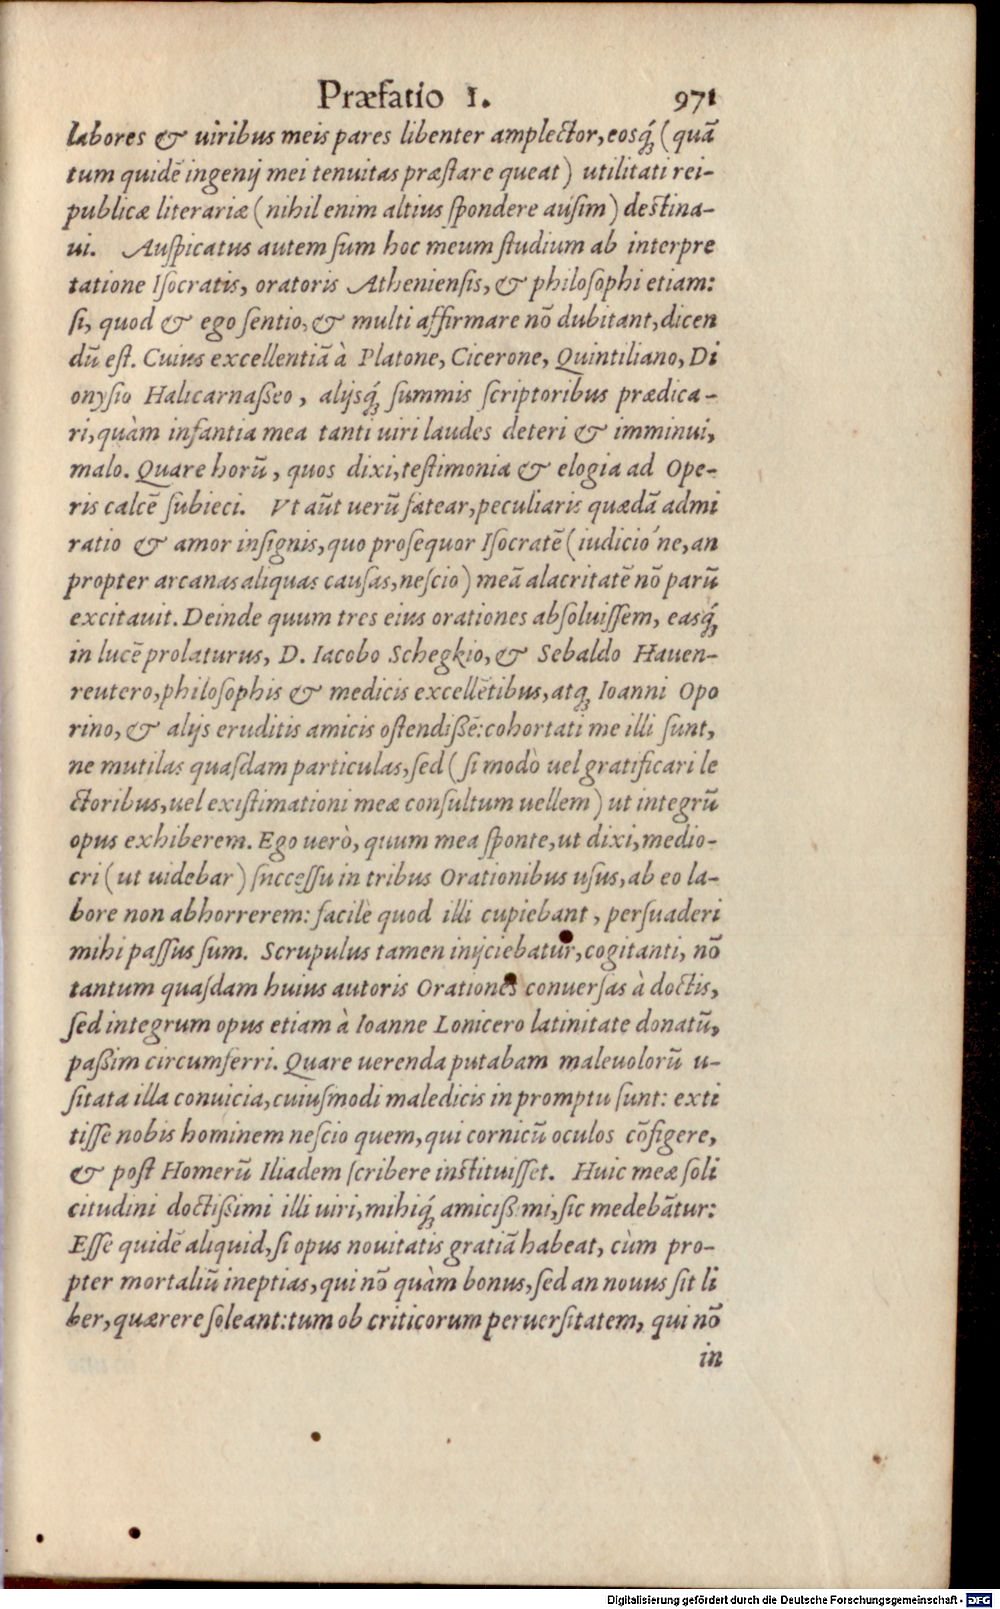 Præfatio I. 971
labores & uiribus meis pares libenter amplector, eosq́; (quã
tum quidẽ ingenij mei tenuitas præstare queat) utilitati rei-
publicæ literariæ (nihil enim altius spondere ausim) destina-
ui. Auspicatus autem sum hoc meum studium ab interpre
tatione Isocratis, oratoris Atheniensis, & philosophi etiam:
si, quod & ego sentio, & multi affirmare nõ dubitant, dicen
dũ est. Cuius excellentiã à Platone, Cicerone, Quintiliano, Di
onysio Halicarnasseo, alijsq́; summis scriptoribus prædica-
ri, quàm infantia mea tanti uiri laudes deteri & imminui,
malo. Quare horũ, quos dixi, testimonia & elogia ad Ope-
ris calcẽ subieci. Vt aũt uerũ fatear, peculiaris quædã admi
ratio & amor insignis, quo prosequor Isocratẽ (iudicio ́ne, an
propter arcanas aliquas causas, nescio) meã alacritatẽ nõ parũ
excitauit. Deinde quum tres eius orationes absoluissem, easq́;
in lucẽ prolaturus, D. Iacobo Schegkio, & Sebaldo Hauen-
reutero, philosophis & medicis excellẽtibus, atq; Ioanni Opo
rino, & alijs eruditis amicis ostendissẽ: cohortati me illi sunt,
ne mutilas quasdam particulas, sed (si modò uel gratificari le
ctoribus, uel existimationi meæ consultum uellem) ut integrũ
opus exhiberem. Ego uerò, quum mea sponte, ut dixi, medio-
cri (ut uidebar) snccessu in tribus Orationibus usus, ab eo la-
bore non abhorrerem: facilè quod illi cupiebant, persuaderi
mihi passus sum. Scrupulus tamen inijciebatur, cogitanti, nõ
tantum quasdam huius autoris Orationes conuersas à doctis,
sed integrum opus etiam à Ioanne Lonicero latinitate donatũ,
passim circumferri. Quare uerenda putabam maleuolorũ u-
sitata illa conuicia, cuiusmodi maledicis in promptu sunt: exti
tisse nobis hominem nescio quem, qui cornicũ oculos cõfigere,
& post Homerũ Iliadem scribere instituisset. Huic meæ soli
citudini doctissimi illi uiri, mihiq́; amicissimi, sic medebãtur:
Esse quidẽ aliquid, si opus nouitatis gratiã habeat, cùm pro-
pter mortaliũ ineptias, qui nõ quàm bonus, sed an nouus sit li
ber, quærere soleant: tum ob criticorum peruersitatem, qui nõ
in
Digitalisierung gefördert durch die Deutsche Forschungsgemeinschaft - DFG